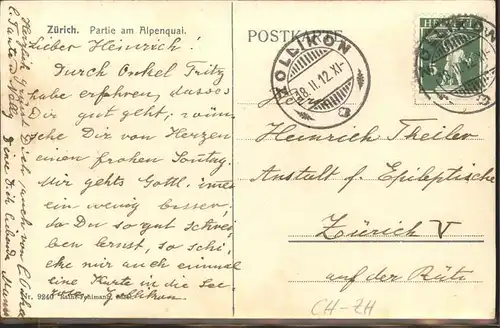 Zürich. Partie am Alpenquai.
Lieber Heinrich!
Durch Onkel Fritz
habe erfahren, dass es
Dir gut geht, wün-
sche Dir von Herzen
einen frohen Sonntag.
Mir gehts Gottl. immer
ein wenig besser.
da Du so gut schrei
ben lernst, so schi-
cke mir auch einmal
eine Karte in die See-
Zollikon
Herzlich Grüsst Dich auch von
Tante Nelly
Deine Dich liebende Mama
Nr. 9240
POSTKARTE
HELVETIA
5
ZOLLIKON
28.II.12.XI-
ZOLLIKON
Heinrich Theiler
Anstalt f. Epileptische
Zürich V
auf der Rüti
CH-ZH